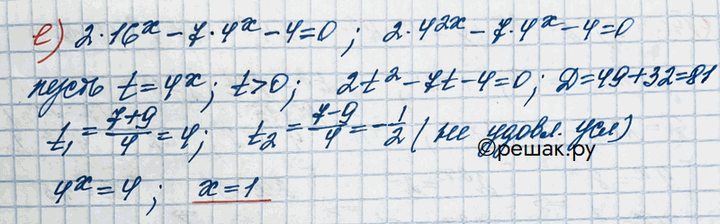 е) 2·16ˣ – 7·4ˣ – 4 = 0 ; 2·4²ˣ – 7·4ˣ – 4 = 0
пусть t = 4ˣ ; t > 0 ; 2t² – 7t – 4 = 0 ; Д = 49 + 32 = 81
t₁ = (7+9)/4 = 4 ; t₂ = (7–9)/4 = –1/2 ( не удовл. усл)
©решак.ру
4ˣ = 4 ; x = 1